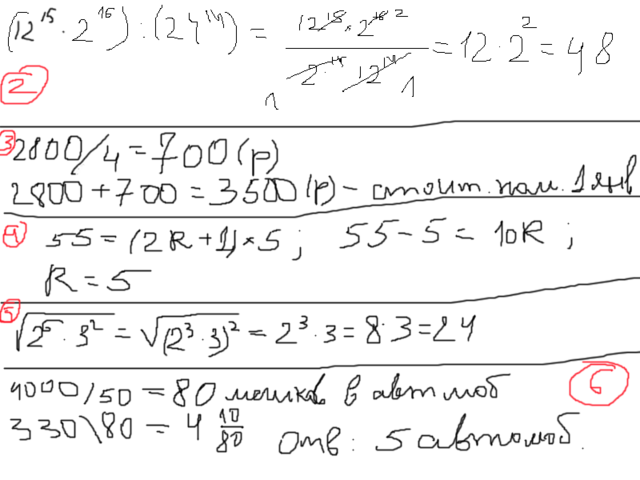 (12^15 · 2^16) : (24^14) = 12^15 · 2^16 2 / 2^14 · 12^14 = 12 · 2^2 = 48
1 1
2
3 2800/4 = 700 (р)
2800 + 700 = 3500 (р) - стоит. пом. 1 янв
4 55 = (2R + 1) * 5 ; 55 - 5 = 10R ;
R = 5
5 √2^6 · 3^2 = √(2^3 · 3)^2 = 2^3 · 3 = 8 · 3 = 24
4000/50 = 80 мешков в автмоб 6
330\80 = 4 10/80 Отв : 5 автомоб.